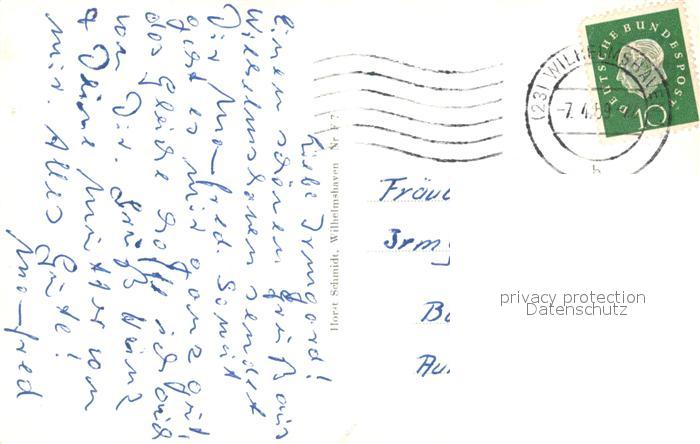 Liebe Irmgard!
Einen schönen Gruß aus
Wilhelmshaven sendet
Dir Manfred. Somit
geht es mir ganz gut,
das gleiche hoffe ich auch
von Dir. Grüß Heinz
& Deine Mutter von
mir. Alles Gute!
Manfred
Horst Schmidt, Wilhelmshaven Nr. F 7
DEUTSCHE BUNDESPOST
10
(23) WILHELMSHAVEN
-7.4.59
b
Fräul
Irmg
Ba
Au
privacy protection
Datenschutz